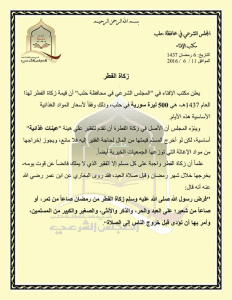 بسم الله الرحمن الرحيم
المجلس الشرعي في محافظة حلب
مكتب الإفتاء
التاريخ: 6 رمضان 1437
الموافق 11 / 6 / 2016
زكاة الفطر
يعلن مكتب الإفتاء في "المجلس الشرعي في محافظة حلب" أن قيمة زكاة الفطر لهذا
العام 1437هـ، هي 500 ليرة سورية في حلب، وذلك وفقاً لأسعار المواد الغذائية
الأساسية هذه الأيام.
وينوّه المجلس أن الأصل في زكاة الفطرة أن تقدم للفقير على هيئة "عينات غذائية"
أساسية، لكن لو أخرج المسلم قيمتها من المال لحاجة الفقير إليه فلا مانع، ويجوز إخراجها
من مواد الإغاثة التي توزعها الجمعيات الخيرية أيضاً.
علماً أن زكاة الفطر واجبة على كل مسلم إلا الفقير الذي لا يملك فاضلاً عن قوت يومه،
يخرجها خلال شهر رمضان وقبل صلاة العيد، فقد روى البخاري عن ابن عمر رضي الله
عنه أنه قال:
"فرض رسول الله صلى الله عليه وسلم زكاة الفطر من رمضان صاعاً من تمر، أو
صاعاً من شعير؛ على العبد والحر، والذكر والأنثى، والصغير والكبير من المسلمين،
وأمر بها أن تؤدى قبل خروج الناس إلى الصلاة"